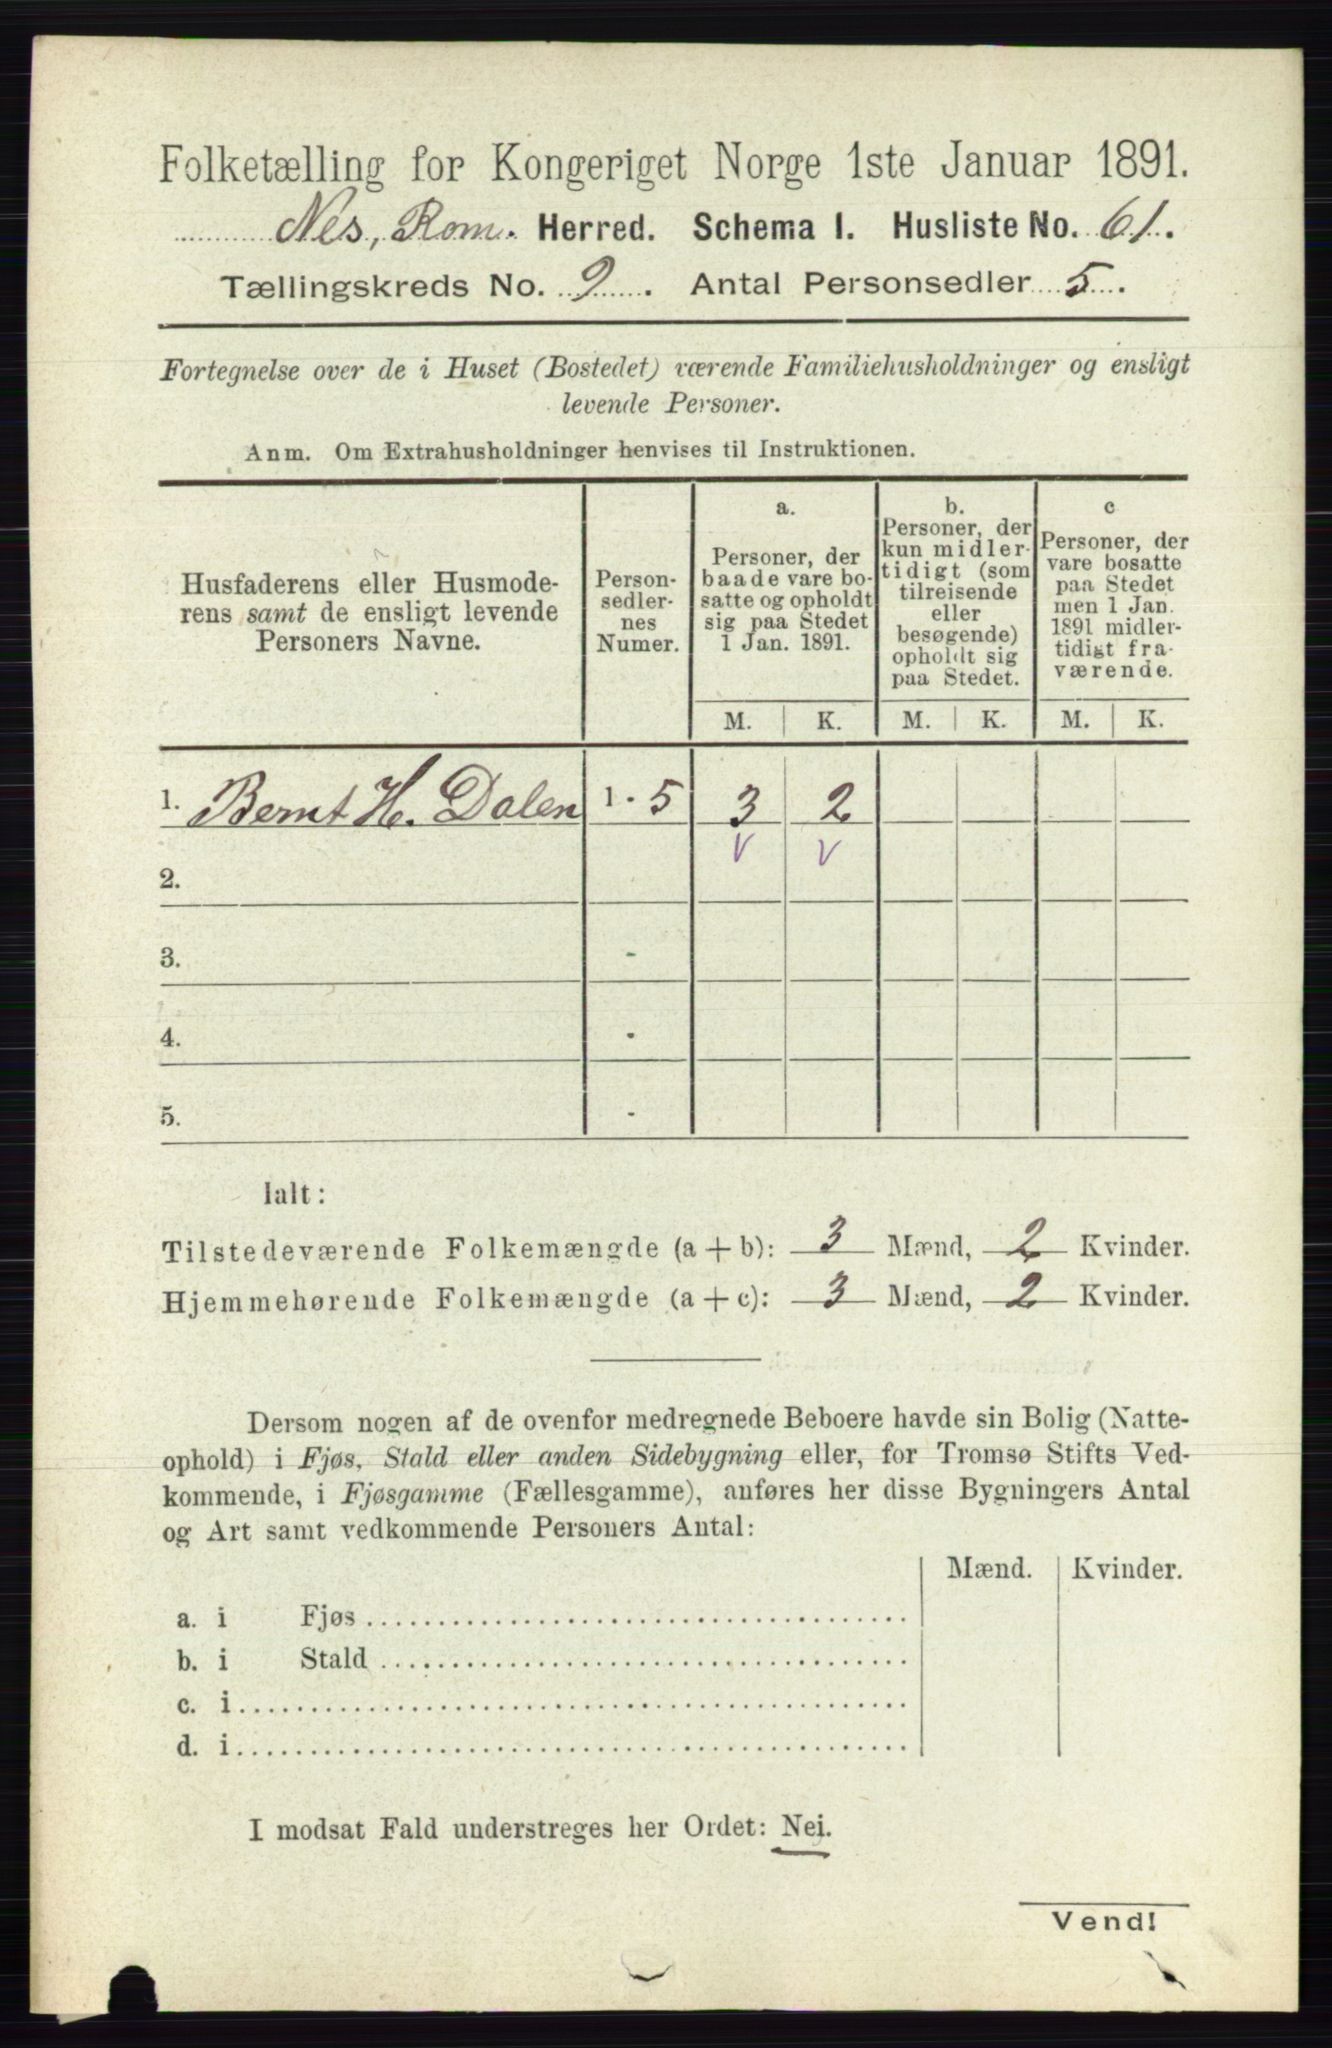 Folketælling for Kongeriget Norge 1ste Januar 1891.
Nes, Rom. Herred. Schema I. Husliste No. 61.
Tællingskreds No. 9. Antal Personsedler 5.
Fortegnelse over de i Huset (Bostedet) værende Familiehusholdninger og ensligt
levende Personer.
Anm. Om Extrahusholdninger henvises til Instruktionen.
Husfaderens eller Husmode-
rens samt de ensligt levende
Personers Navne.
Person-
sedler-
nes
Numer.
a.
Personer, der
baade vare bo-
satte og opholdt
sig paa Stedet
1 Jan. 1891.
b.
Personer, der
kun midler-
tidigt (som
tilreisende
eller
besøgende)
opholdt sig
paa Stedet.
c
Personer, der
vare bosatte
paa Stedet
men 1 Jan.
1891 midler-
tidigt fra-
værende.
M. K. M. K. M. K.
1. Bernt H. Dalen 1 - 5 3 2
2.
3. -
4. -
5. -
Ialt:
Tilstedeværende Folkemængde (a + b): 3 Mænd, 2 Kvinder.
Hjemmehørende Folkemængde (a + c): 3 Mænd, 2 Kvinder.
Dersom nogen af de ovenfor medregnede Beboere havde sin Bolig (Natte-
ophold) i Fjøs, Stald eller anden Sidebygning eller, for Tromsø Stifts Ved-
kommende, i Fjøsgamme (Fællesgamme), anføres her disse Bygningers Antal
og Art samt vedkommende Personers Antal:
Mænd. Kvinder.
a. i Fjøs
b. i Stald
c. i
d. i
I modsat Fald understreges her Ordet: Nei.
Vend!